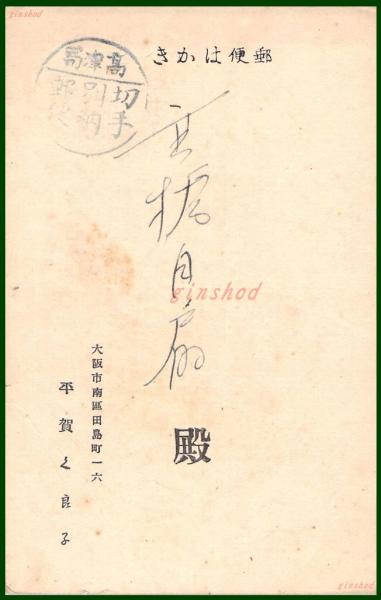 ginshod
郵便はかき
高津局
切手
別納
郵便
ginshod
殿
大阪市南區田島町一六
平賀 良子
ginshod